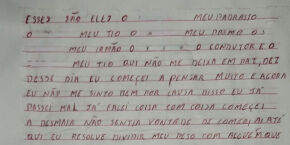 ESSES SÃO ELES O MEU PADRASSO
O MEU TIO O MEU PRIMO O
MEU IRMÃO O CONDUTOR E O
MEU TIO QUI NÃO ME DEIXA EM PAZ, DEZ
DESSE DIA EU COMECEI A PENSAR MUITO E AGORA
EU NÃO ME SINTO BEM POR CAUSA DISSO EU JÁ
PASSEI MAL JÁ FALEI COISA COM COISA COMECEI
A DESMAIA NÃO SENTIA VONTADE DE COMECAI ATÉ
QUI EU RESOLVE DIVIDIR MEU PESO COM ALGUÉM QUE